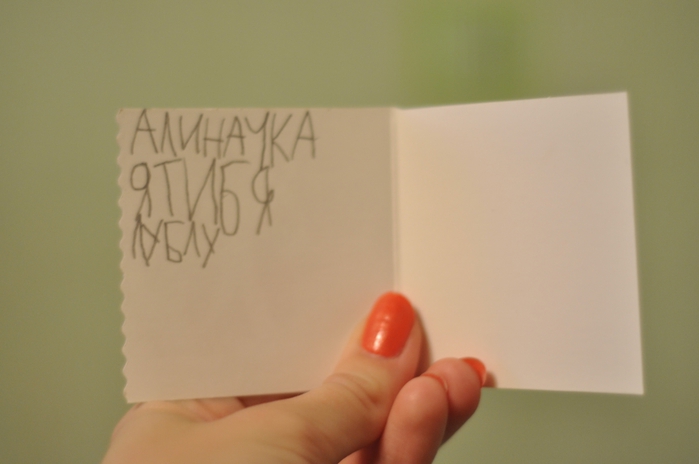 АЛИНАЧКА
Я ТИБЯ
ЛУБЛУ